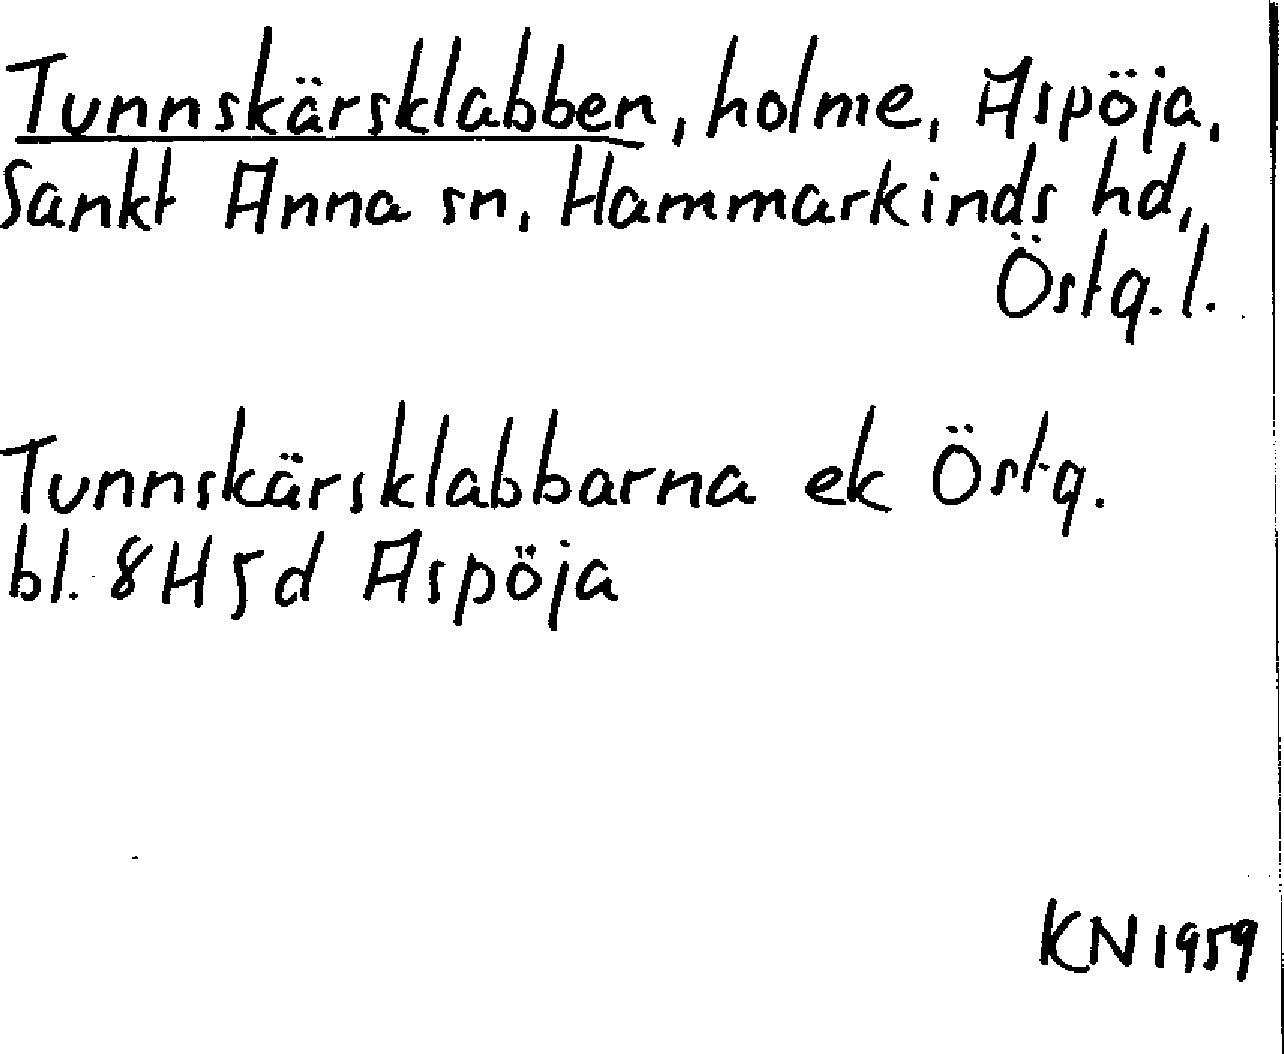 Tunnskärsklabben, holme, Aspöja,
Sankt Anna sn, Hammarkinds hd,
Östg. l.
Tunnskärsklabbarna ek Östg.
bl. 8H5d Aspöja
KN 1959